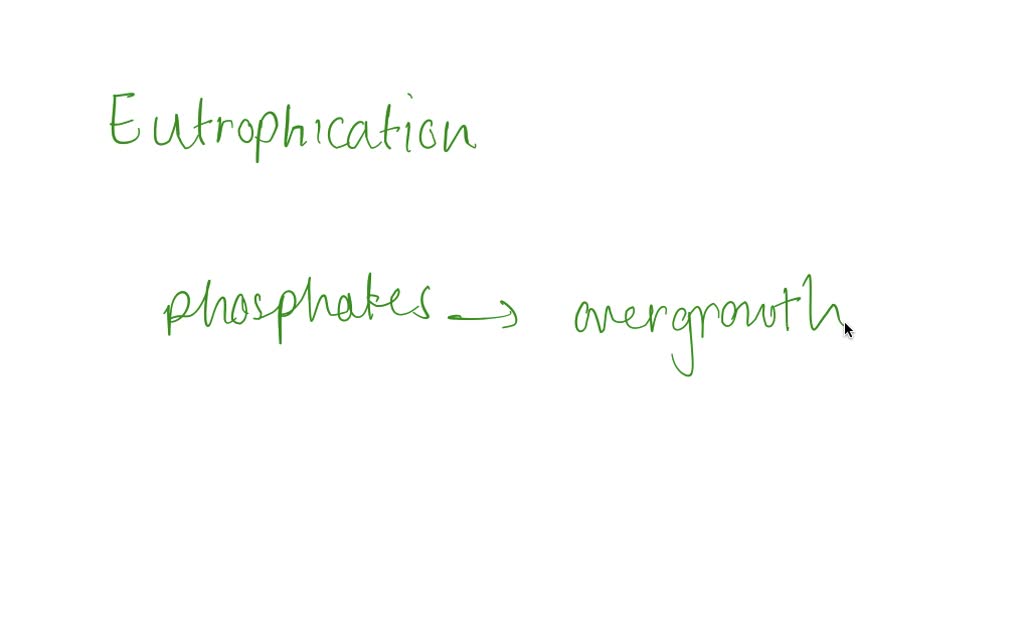 Eutrophication
phosphates → overgrowth